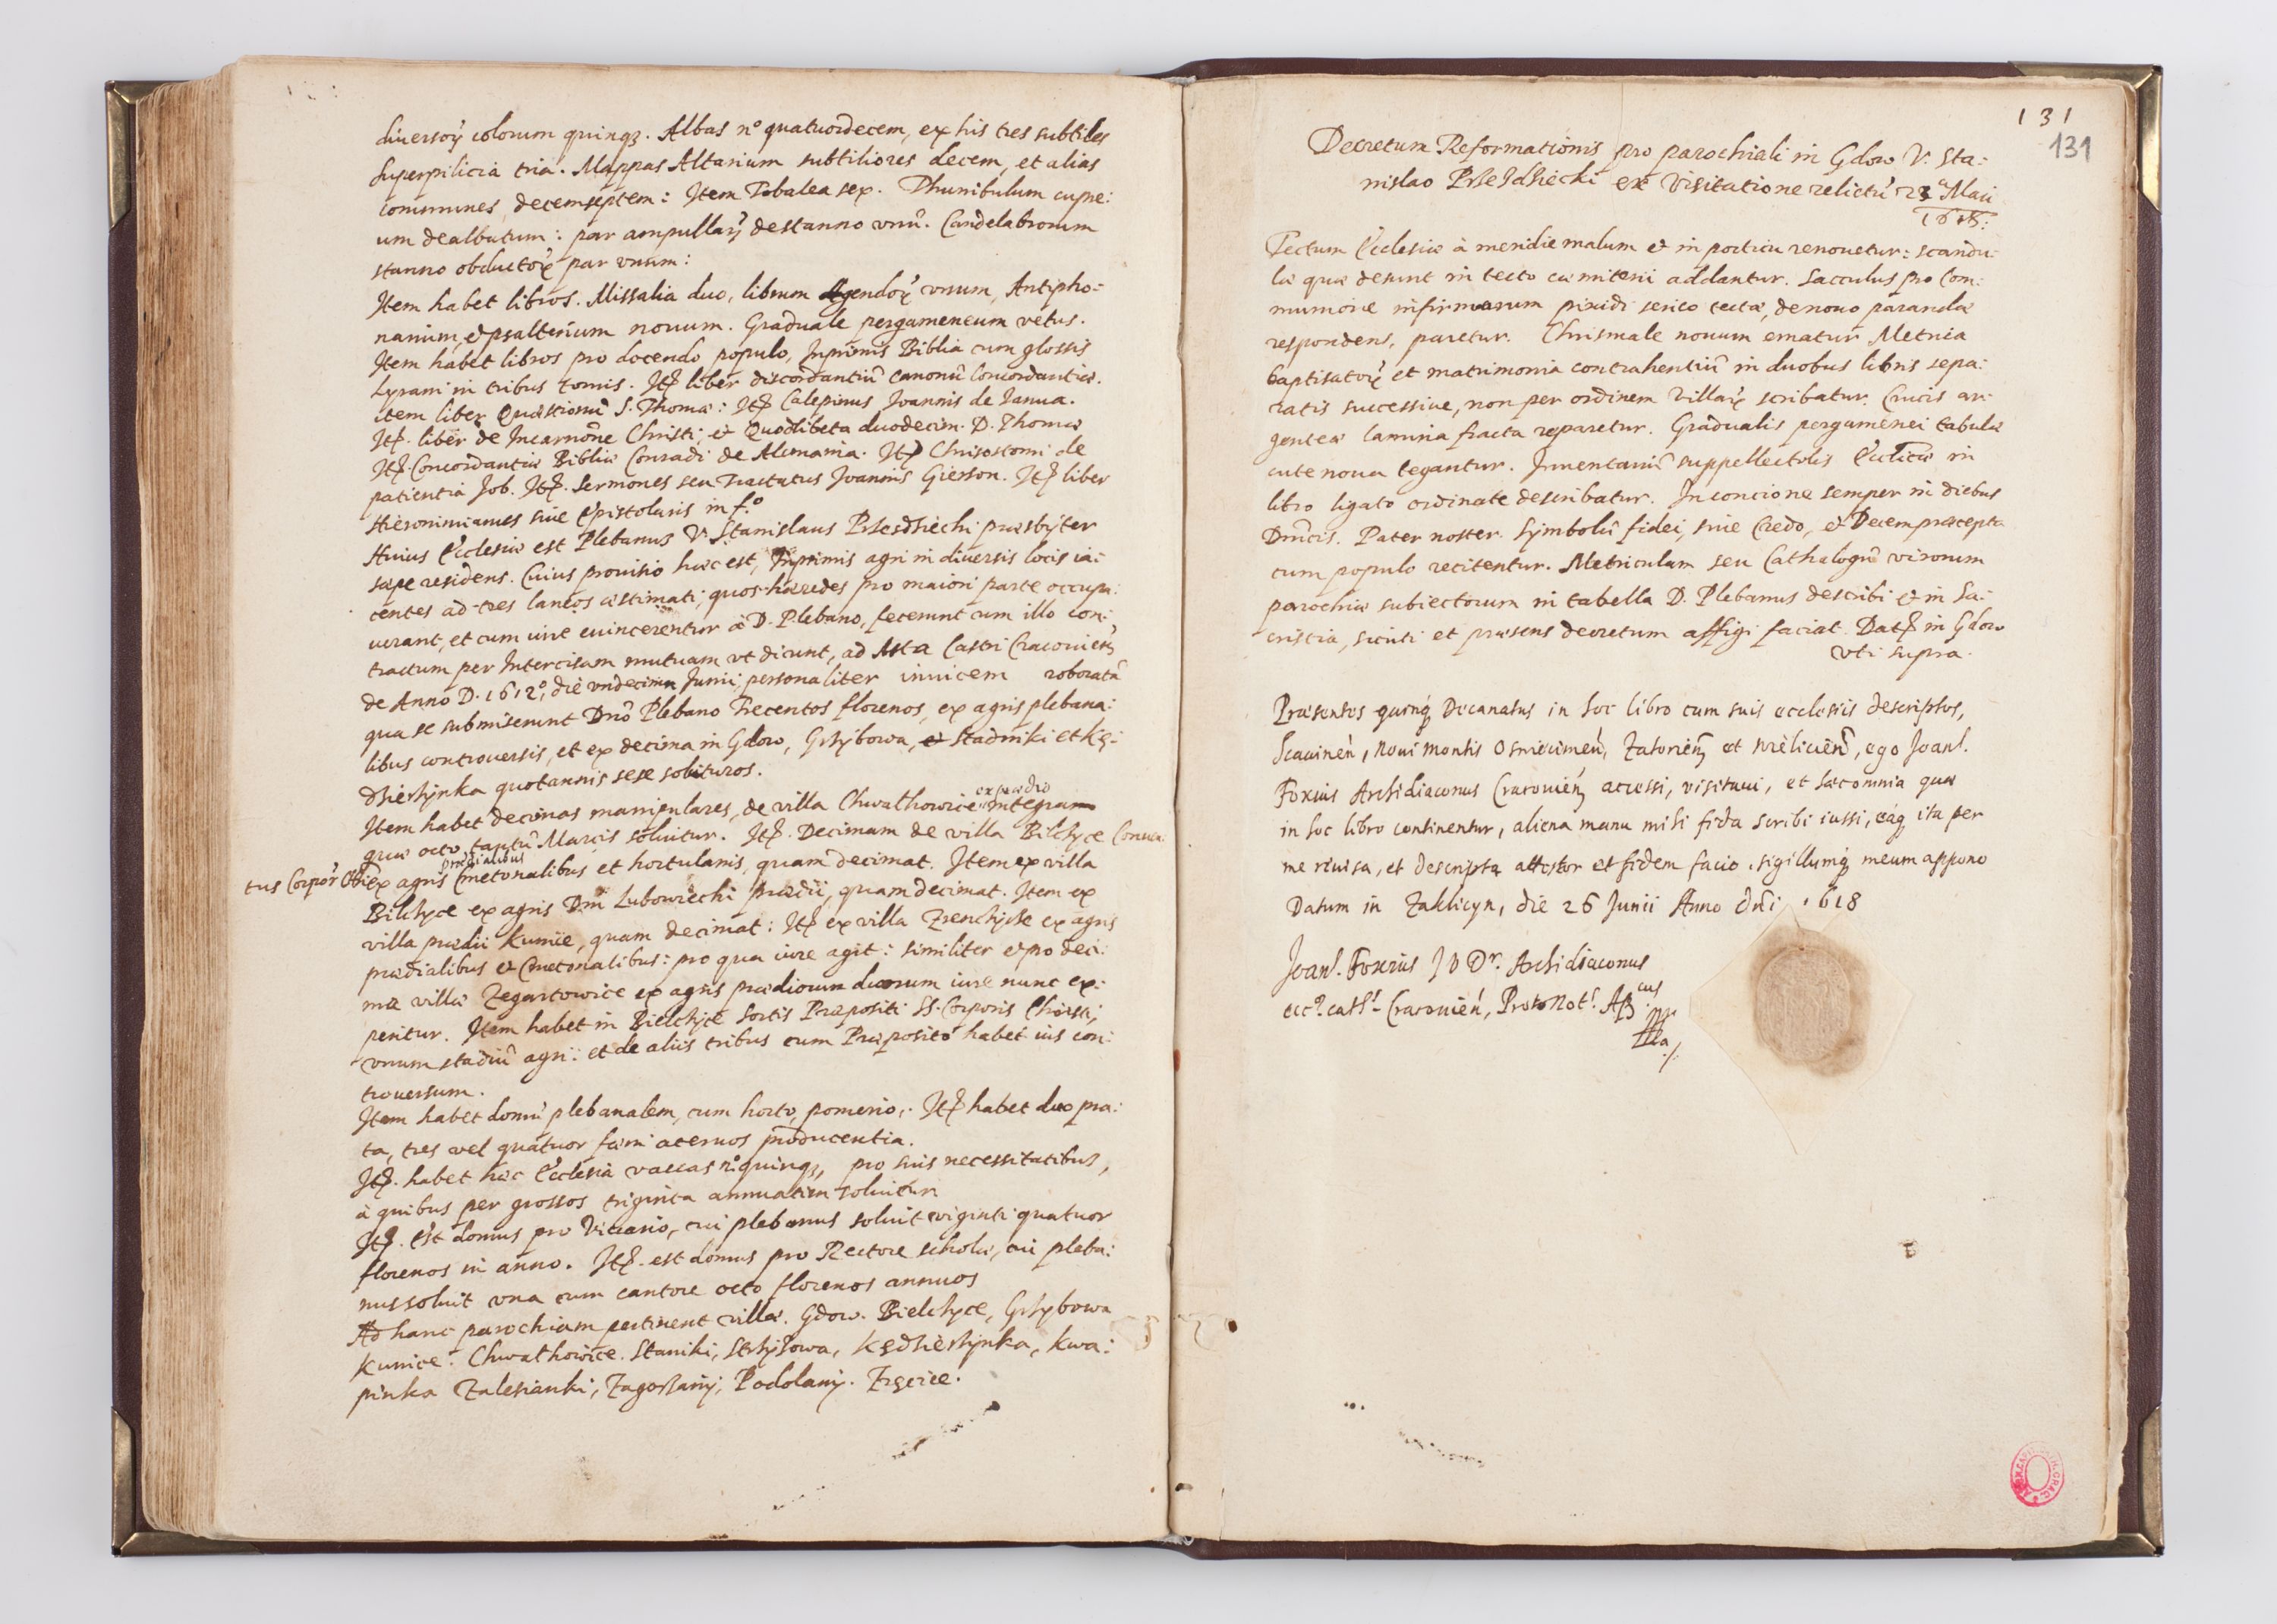 diuersoru̅ colorum quinq₃. Albas n° quatuordecem, ex his tres subtiles
Superpilicia tria. Mappas Altarium subtiliores decem, et alias
communes decemseptem: Item Tobalea sex. Thuribulum cupre:
um dealbatum: par ampullaru̅ de stanno vnu̅. Candelabrorum
stanno obductoru̅ par vnum:
Item habet libros. Missalia duo, librum Agendoru̅ vnum, Antipho-
narium, & psalterium nouum. Graduale pergameneum vetus.
Item habet libros pro docendo populo, Inprimis Biblia cum glossis
Lyrani in tribus tomis. Ite̅ liber discordantiu̅ canonu̅ Concordantiæ.
item liber Quæstionu̅ S. Thomæ: Ite̅ Calepinus Joannis de Janua.
Ite̅. liber de Incarno̅ne Christi, et Quodlibeta duodecim. D. Thomæ
Ite̅. Concordantiæ Bibliæ Conradi de Alemania. Ite̅ Chrisostomi de
patientia Job. Ite̅. Sermones seu Tractatus Joannis Gierson. Ite̅ liber
Hieronimianus siue Epistolaris in f.°
Huius Ecclesiæ est Plebanus V. Stanislaus Przesdziecki præsbÿter
sæpe residens. Cuius prouisio hæc est, Inprimis agri in diuersis locis ia:
centes ad tres laneos æstimati, quos hæredes pro maiori parte occupa:
uerant, et cum iure euincerentur a D. Plebano, fecerunt cum illo con:
tractum per Intercisam mutuam vt dicunt, ad Acta Castri Cracouien̅
de Anno D. 1612°, die vndecima Junii, personaliter inuicem roborata̅
qua se submiserunt Dn̅o Plebano Trecentos florenos, ex agris plebana:
libus controuersis, et ex decima in Gdow, Grzÿbowa, et Stadniki et Kę:
dzierzÿnka quotannis sese soluturos.
Item habet decimas manipulares, de villa Chwalkowice ex prædio integram
quæ octo tantu̅ Marcis soluitur. Ite̅. Decimam de villa Bilczyce Conuen
tus Corpor̅ Chr̅i ex agris prædialibus Cmetonalibus et hortulanis, quam decimat. Item ex villa
Bilczyce ex agris Dni̅ Lubowiecki prædii, quam decimat. Item ex
villa prædii Kunice, quam decimat: Ite̅ ex villa Zrenczyce ex agris
prædialibus & Cmetonalibus: pro qua iure agit: similiter & pro deci:
ma villæ Zegartowice ex agris prædiorum duorum iure nunc ex:
peritur. Item habet in Bielczyce Sortis Præpositi SS. Corporis Christi,
vnum stadiu̅ agri: et de aliis tribus cum Præposito habet ius con:
trouersum.
Item habet domu̅ plebanalem, cum horto, pomerio,. Ite̅ habet duo pra:
ta, tres vel quatuor fæni aceruos producentia.
Ite̅. habet hæc Ecclesia vaccas n° quinq₃, pro suis necessitatibus,
a quibus per grossos triginta annuatim soluitur.
Ite̅. est domus pro Vicario, cui plebanus soluit viginti quatuor
florenos in anno. Ite̅. est domus pro Rectore scholæ, cui pleba:
nus soluit vna cum cantore octo florenos annuos
Ad hanc parochiam pertinent villæ. Gdow. Bielczyce, Grzybowa
Kunice. Chwalkowice. Staniki, Strzÿzowa, Kędzierzynka, Kwa:
pinka Zalesianki, Zagorzanÿ, Podolanÿ. Zręcice.
131
131
Decretum Reformationis pro parochiali in Gdow V. Sta:
nislao Przezdziecki ex Visitatione relictu̅ 23 a Maii
1618.
Tectum Ecclesiæ à meridie malum & in porticu renouetur: scandu:
læ quæ desunt in tecto cæmiterii addantur. Sacculus pro Com:
munione infirmorum pixidi serico tectæ, denouo parandæ
respondens, paretur. Chrismale nouum ematur Metrica
baptisatoru̅ et matrimonia contrahentiu̅ in duobus libris sepa:
ratis successiue, non per ordinem Villaru̅ scribatur. Crucis ar:
genteæ lamina fracta reparetur. Gradualis pergamenei tabulæ
cute noua tegantur. Inuentariu̅ suppellectilis Eccl̅icæ in
libro ligato ordinate describatur. In concione semper in diebus
Dni̅cis. Pater noster. Symbolu̅ fidei, siue Credo, & Decem præcepta
cum populo recitentur. Metriculam seu Cathalogu̅ virorum
parochiæ subiectorum in tabella D. Plebanus describi & in Sa:
cristia, sicuti et præsens decretum affigi faciat. Dat̅ in Gdow
vti supra.
Præsentes quinq₃ Decanatus in hoc libro cum suis ecclesiis descriptos,
Scauinen̅, Noui Montis Osuiecimen̅, Zatorien̅ et Wielicien̅, ego Joan̅.
Foxius Archidiaconus Cracouien̅ accessi, visitaui, et hæc omnia quæ
in hoc libro continentur, aliena manu mihi fida scribi iussi, eaq₃ ita per
me reuisa, et descripta attestor et fidem facio. sigillumq₃ meum appono
Datum in Zaklicyn, die 26 Junii Anno dni̅ 1618
Joan̅. Foxius J V Dr. Archidiaconus
eccl. cath. Cracouien̅, Proto Not. Ap̅cus